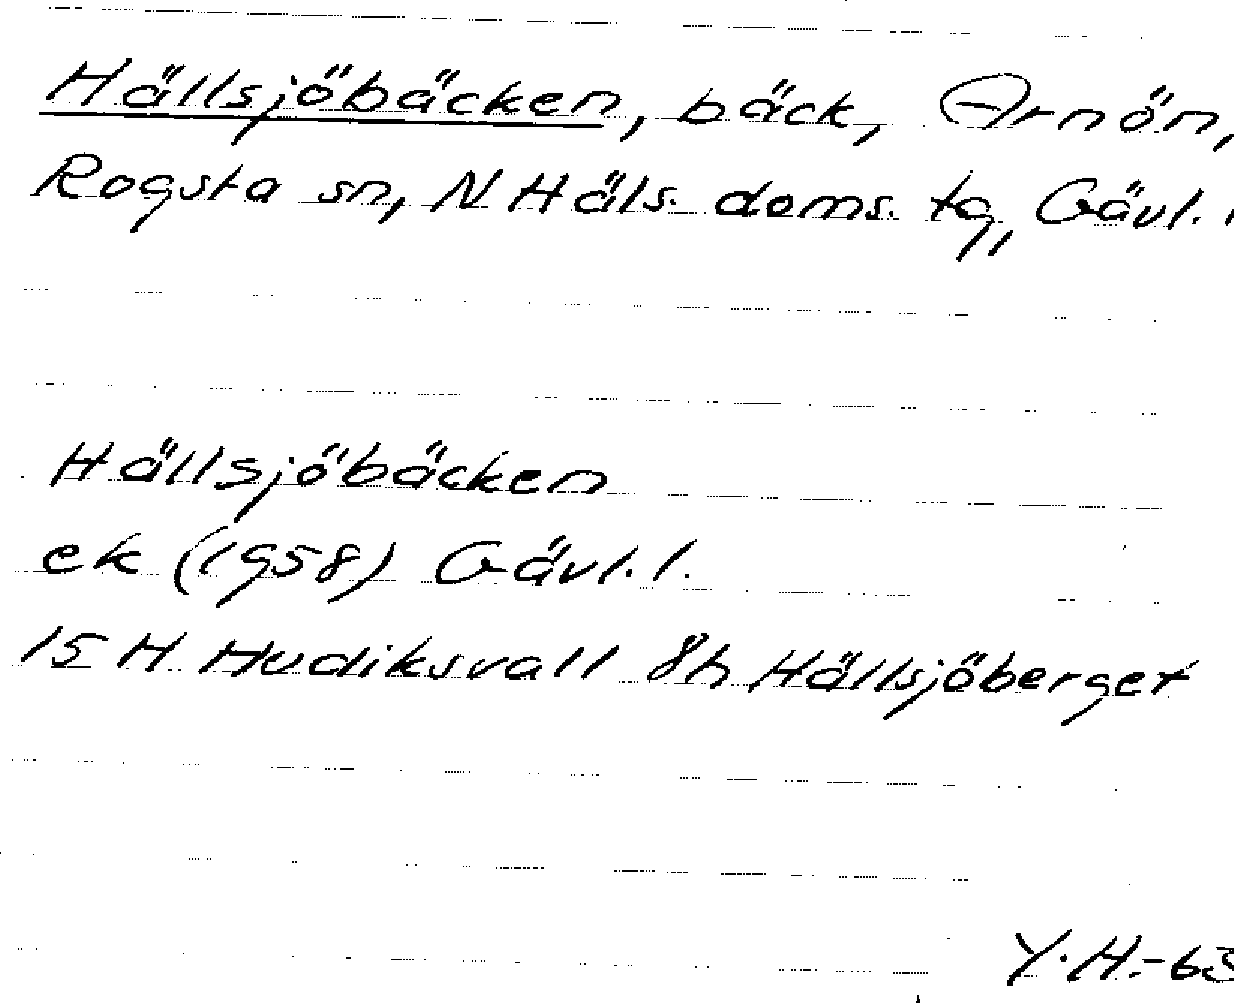 Hällsjöbäcken, bäck, Arnön,
Rogsta sn, N Häls. doms. tg, Gävl. l
Hällsjöbäcken
ek (1958) Gävl. l.
15 H Hudiksvall 8h Hällsjöberget
Y.H.-63